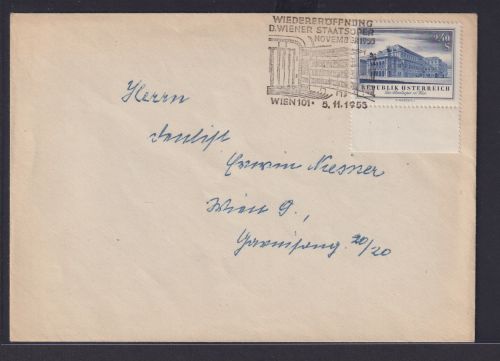 WIEDERERÖFFNUNG
D. WIENER STAATSOPER
NOVEMBER 1955
WIEN 101 · 5.11.1955
2.40
S
REPUBLIK ÖSTERREICH
Herrn
Dentist
Erwin Niesner
Wien 9.,
Garnisong. 20/20